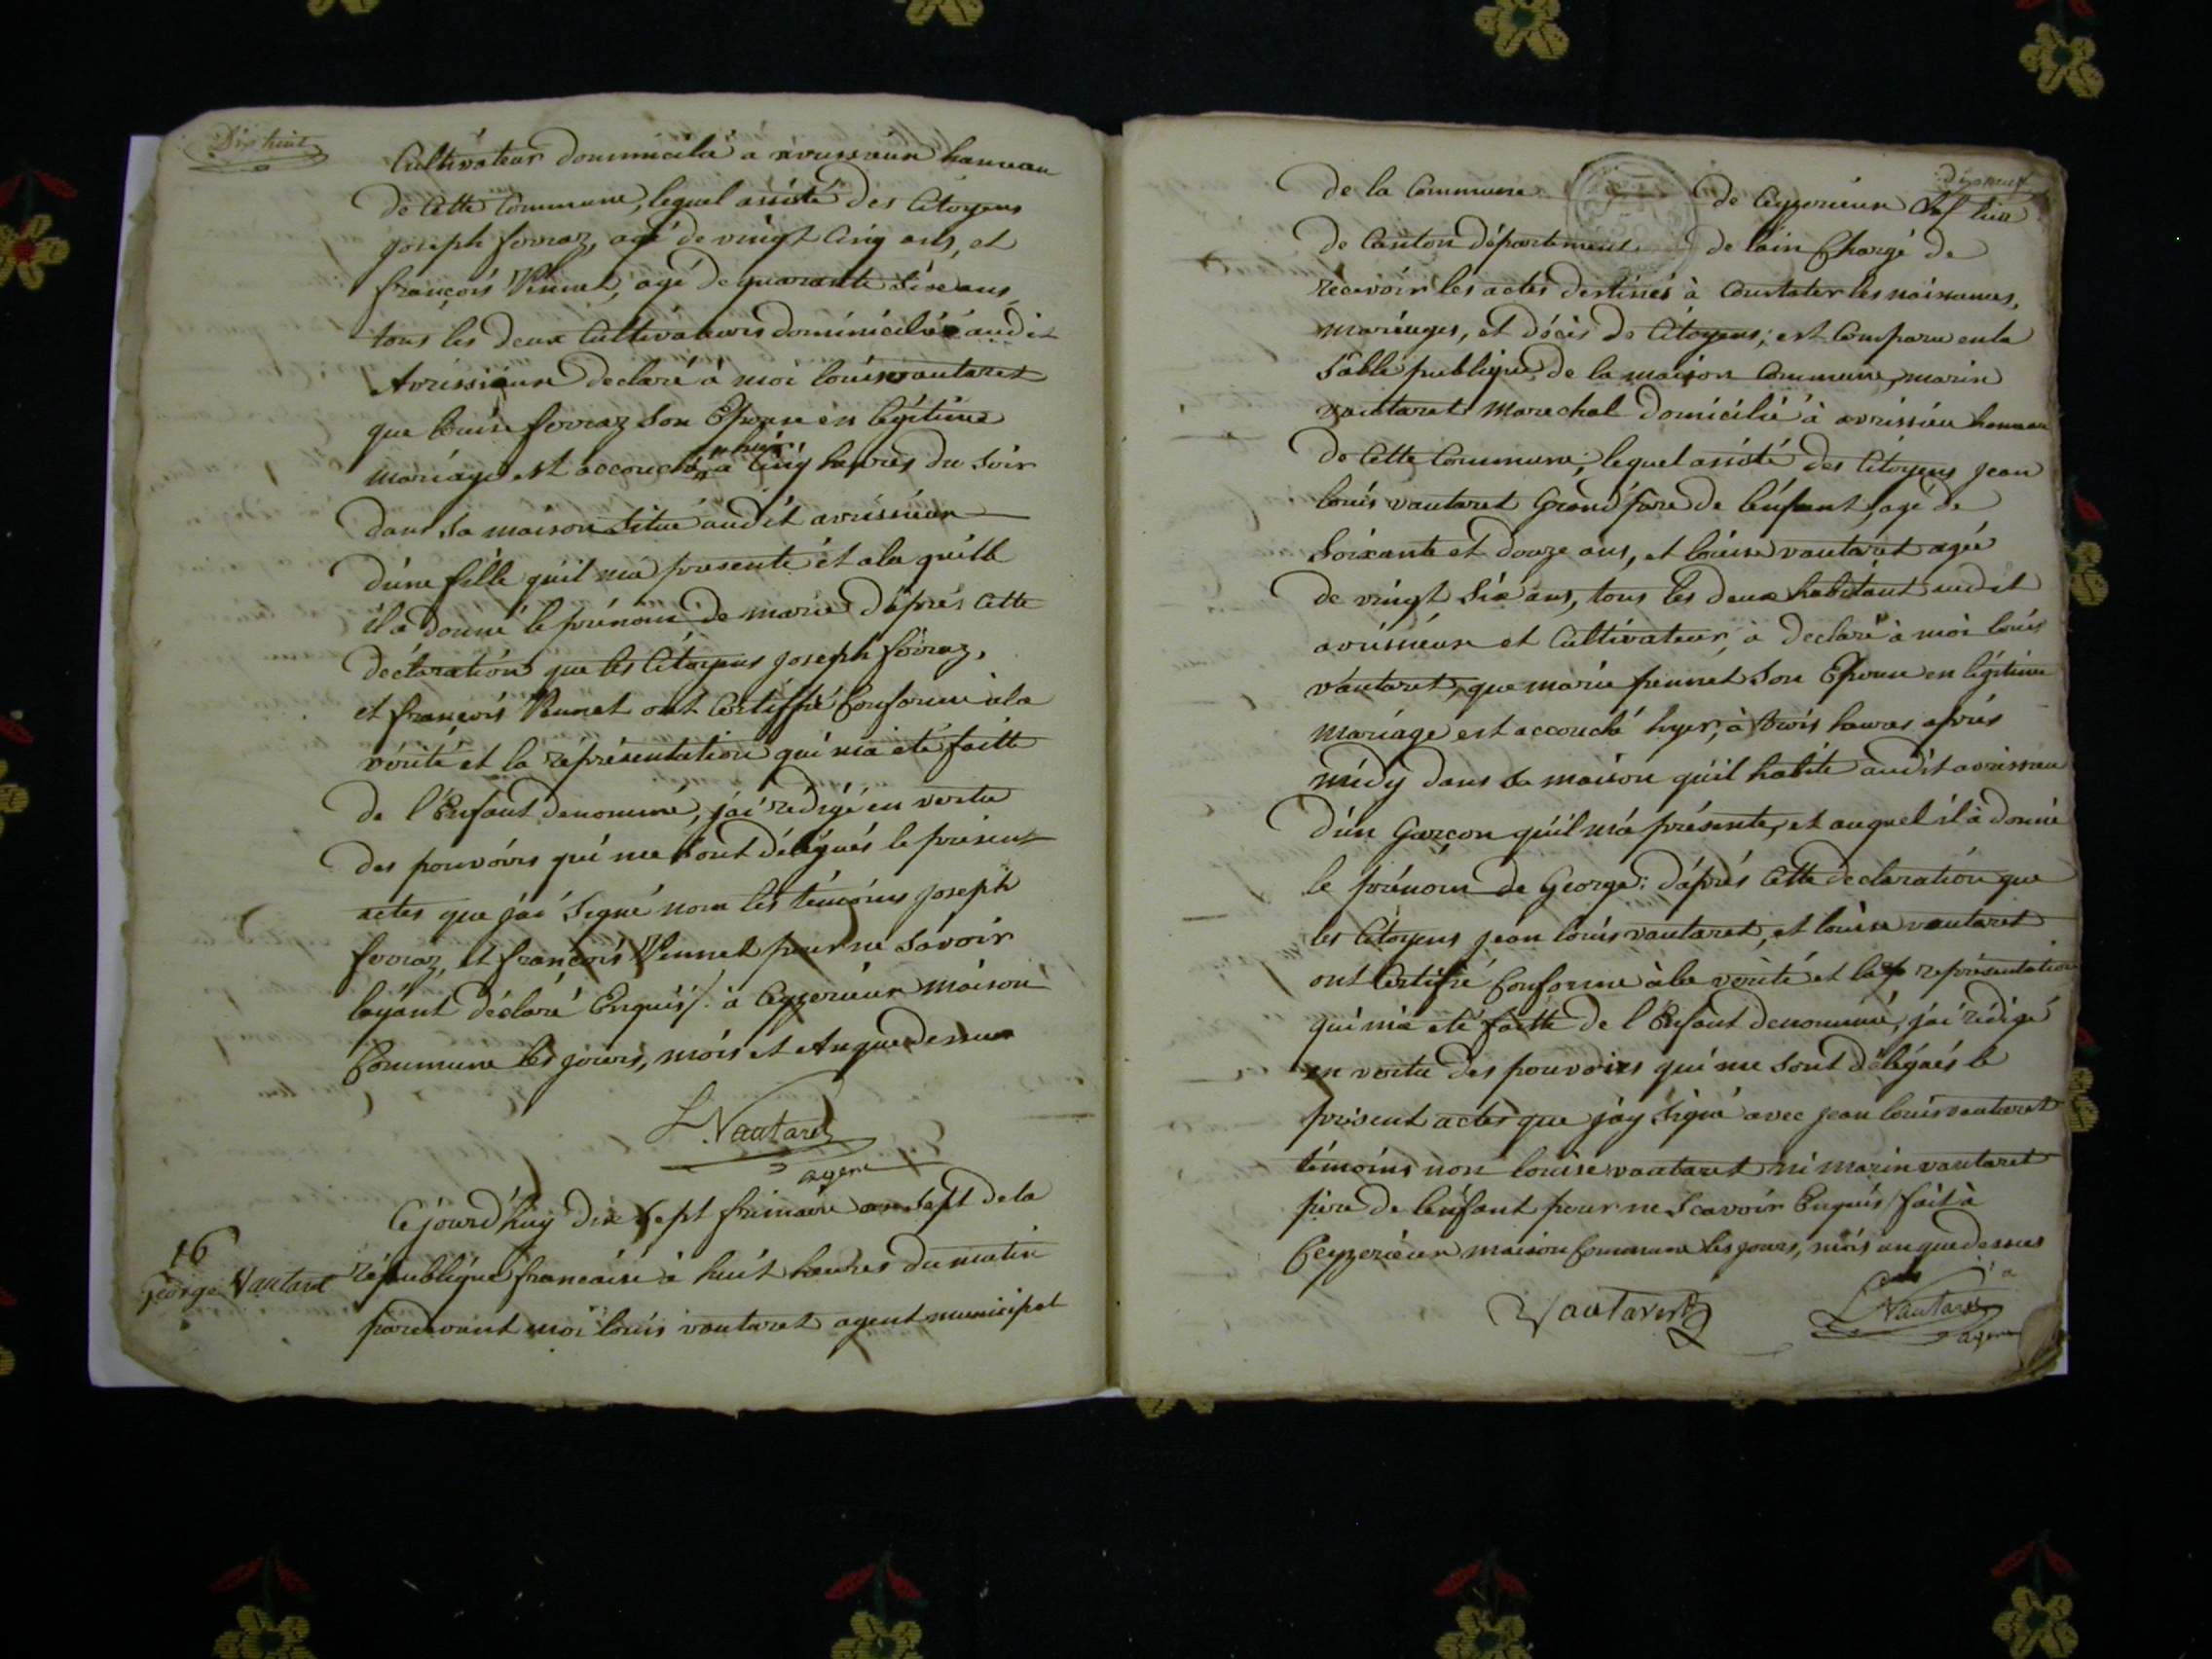 Dix huit
Cultivateur dommicilié a avrissieux hameau
de Cette Commune, lequel assisté des Citoyens
joseph forraz, agé de vingt Cinq ans, et
françois Vennet, agé de quarante Sixe ans
tous les deux Cultivateurs dominiciliés audit
Avrissieux declaré à moi louis vautaret
que louise forraz Son Epouse en legitime
mariage est accouché hier à Cinq heures du Soir
dans Sa maison Situé audit avrissieux
dúne fille quil ma presenté et a la quélle
il a donné le prénom de marie d'áprés Cette
déclaration que les Citoyens joseph forraz,
et françois Vennet ont Certiffié Conforme à la
vérité et la répréséntation qui ma eté faitte
de l'Enfant denommé, jai rédigé en vertu
des pouvoirs qui me sont délégués le présent
actes que jai Signé non les témoins joseph
forraz, et françois Vennet pour ne Savoir
layant déclaré Enquis/. à Ceyzerieux maison
Commune les jours, mois et An que dessus
L. Vautaret
agent
16
George Vautaret
Cejourd'huy dix Sept frimaire an Sept de la
républiqué francaise à huit heures du matin
pardevant moi louis vautaret agent municipal
dix neuf
de la Commune de Ceyzerieux Chef lieu
de Canton département de lain Chargé de
récevoir les actes destinés à Constater les naissances,
mariages, et décès de Citoyens; est Comparu en la
Salle publique de la maison Commune, marin
vautaret marechal domicilié à avrissieu hameau
de Cette Commune; lequel assisté des Citoyens jean
louis vautaret Grand pere de lénfant, agé de
Soixante et douze ans, et louise vautaret agée
de vingt Six ans, tous les deux habitant audit
avrissieux et Cultivateur, à declaré à moi louis
vautaret, que marie pennet Son Epouse en légitime
mariage est accouché hyer, à trois heures aprés
midy dans la maison quil habite audit avrissieu
d'un Garçon quil má présenté, et auquel il à donné
le prénom de George: dáprés Cette declaration que
les Citoyens jean louis vautaret, et louise vautaret
ont Certifié Conforme à la verité et la représentation
qui ma eté faitte de l'Enfant denommé, jai rédigé
en vertu des pouvoirs qui me sont délégués le
présent actes que jay Signé avec jean louis vautaret
témoins non louise vautaret ni marin vautaret
pere de lénfant pour ne Scavoir Enquis/ fait à
Ceyzerieux maison Commune les jours, mois an que dessus
Vautaret
L. Vautaret
agent